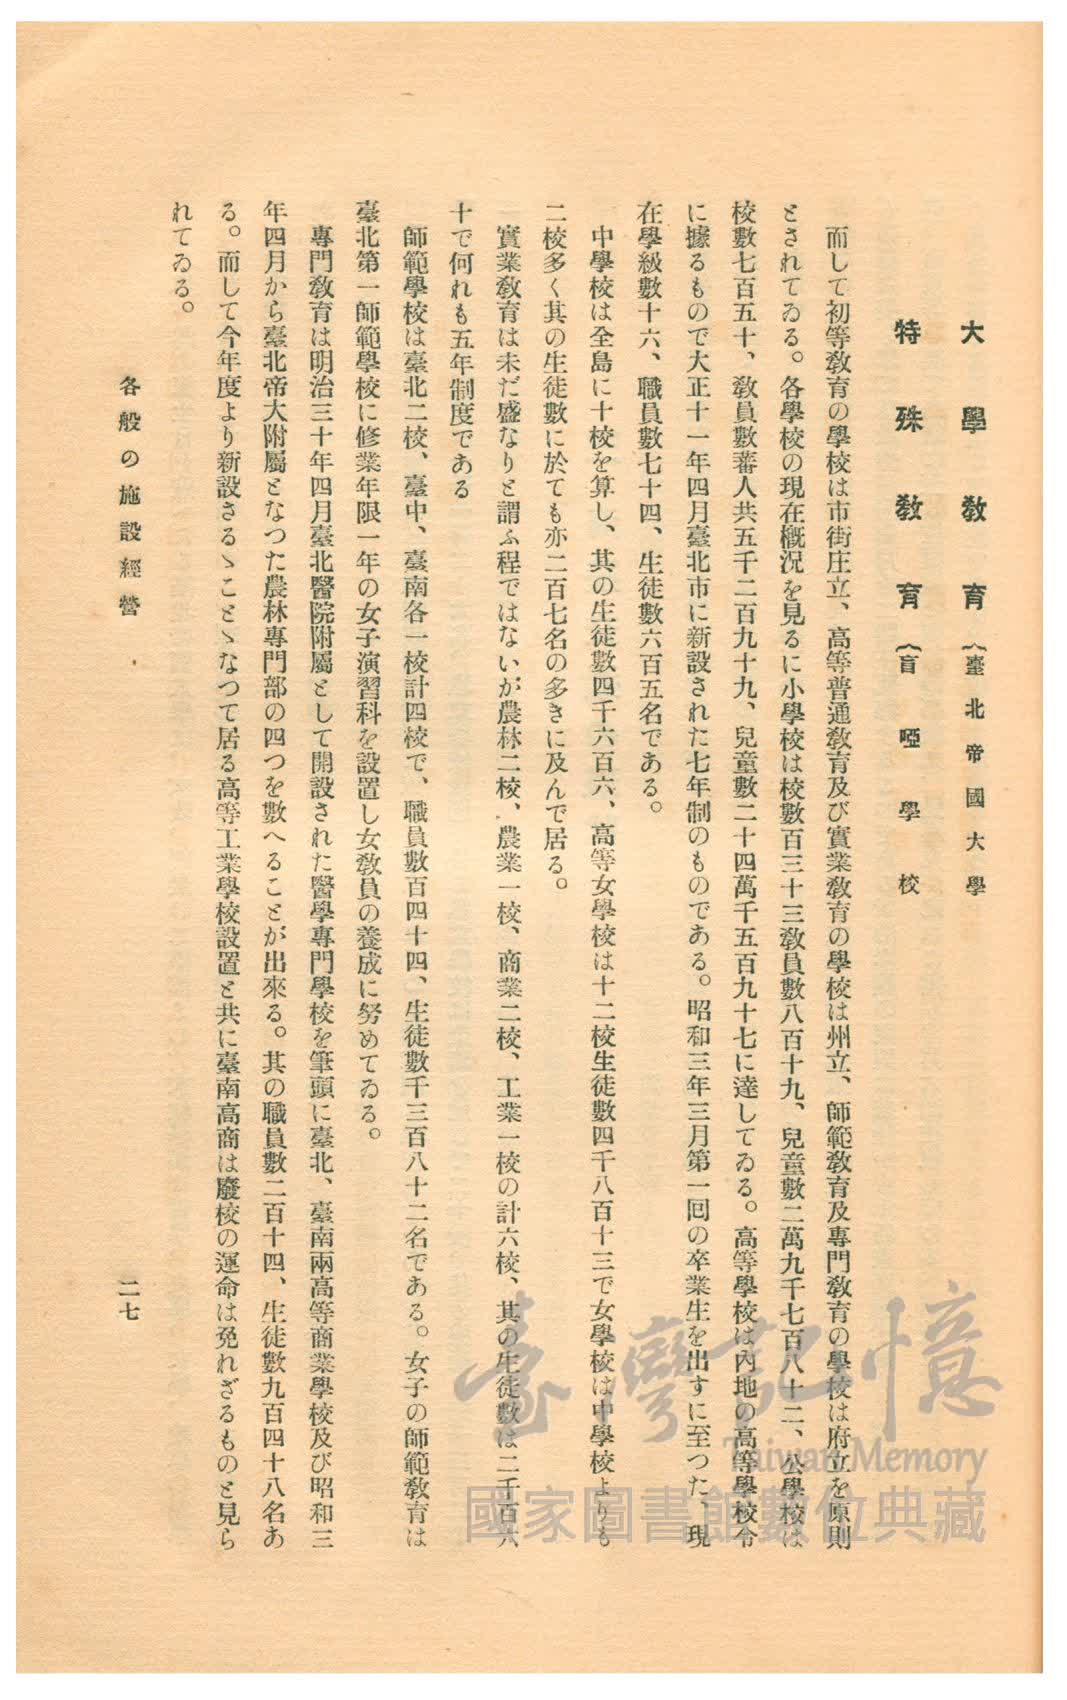 大學敎育(臺北帝國大學
特殊敎育(盲啞學校
而して初等敎育の學校は市街庄立、高等普通敎育及び實業敎育の學校は州立、師範敎育及專門敎育の學校は府立を原則
とされてゐる。各學校の現在槪況を見るに小學校は校數百三十三敎員數八百十九、兒童數二萬九千七百八十二、公學校は
校數七百五十、敎員數蕃人共五千二百九十九、兒童數二十四萬千五百九十七に達してゐる。高等學校は內地の高等學校令
に據るもので大正十一年四月臺北市に新設された七年制のものである。昭和三年三月第一囘の卒業生を出すに至つた、現
在學級數十六、職員數七十四、生徒數六百五名である。
中學校は全島に十校を算し、其の生徒數四千六百六、高等女學校は十二校生徒數四千八百十三で女學校は中學校よりも
二校多く其の生徒數に於ても亦二百七名の多きに及んで居る。
實業敎育は未だ盛なりと謂ふ程ではないが農林二校、農業一校、商業二校、工業一校の計六校、其の生徒數は二千百六
十で何れも五年制度である
師範學校は臺北二校、臺中、臺南各一校計四校で、職員數百四十四、生徒數千三百八十二名である。女子の師範敎育は
臺北第一師範學校に修業年限一年の女子演習科を設置し女敎員の養成に努めてゐる。
專門敎育は明治三十年四月臺北醫院附屬として開設された醫學專門學校を筆頭に臺北、臺南兩高等商業學校及び昭和三
年四月から臺北帝大附屬となつた農林專門部の四つを數へることが出來る。其の職員數二百十四、生徒數九百四十八名あ
る。而して今年度より新設さるゝことゝなつて居る高等工業學校設置と共に臺南高商は廢校の運命は免れざるものと見ら
れてゐる。
各般の施設經營
二七
臺灣記憶
Taiwan Memory
國家圖書館數位典藏